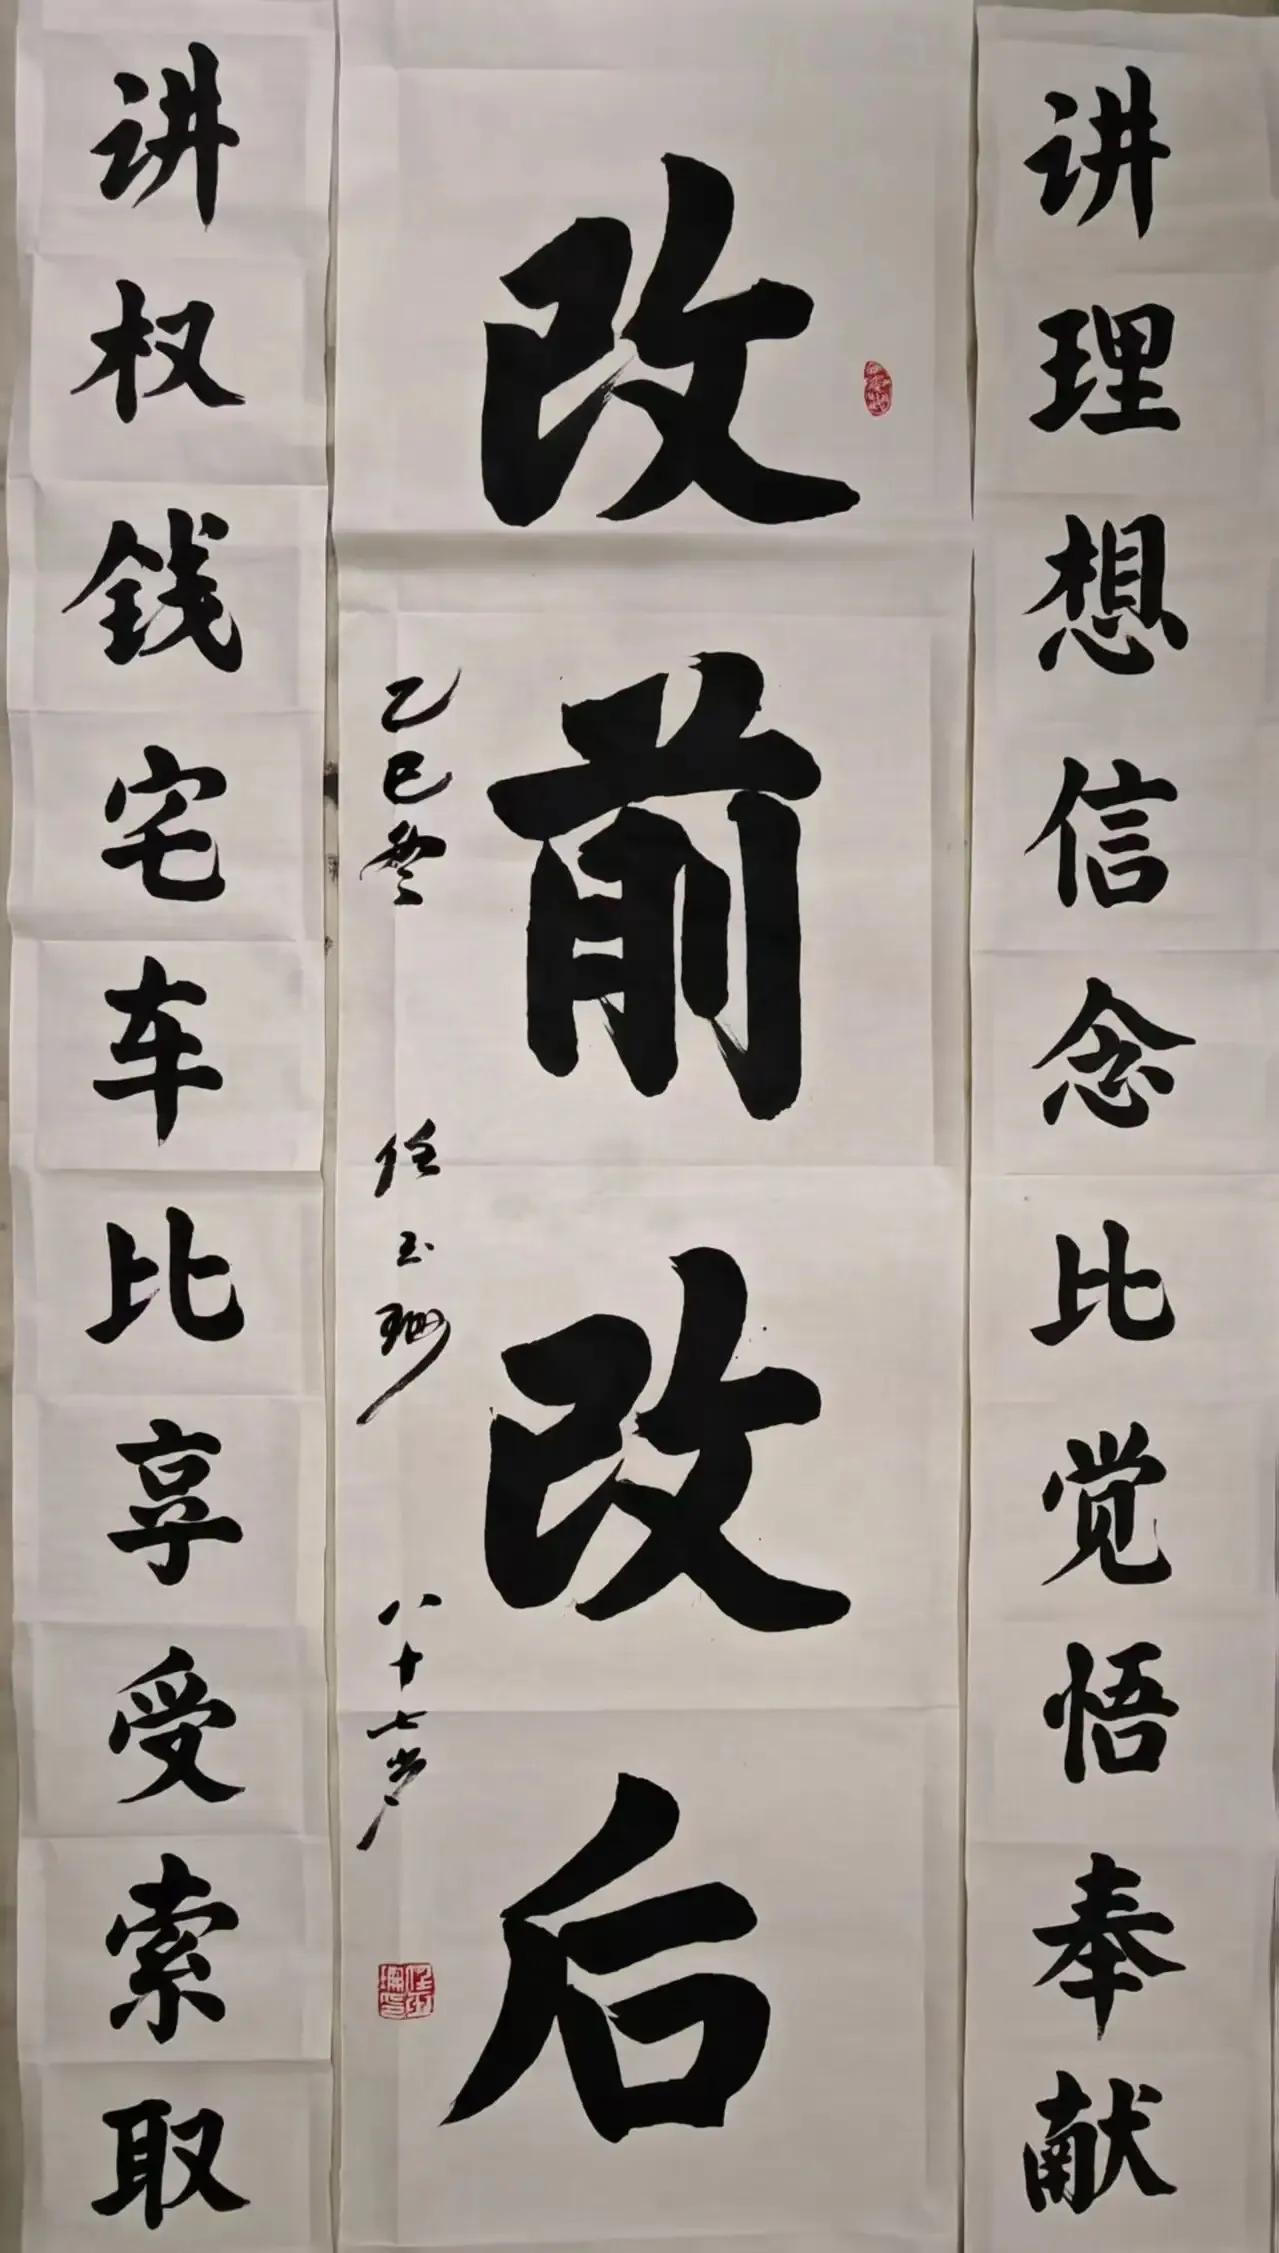 讲理想信念比觉悟奉献
改前改后
乙巳冬 任玉珊 八十七岁
讲权钱宅车比享受索取